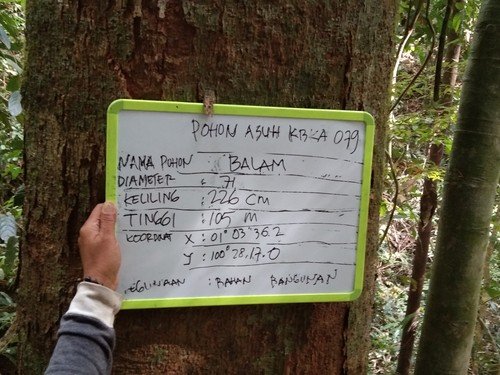 POHON ASUH KBKA 079
NAMA POHON : BALAM
DIAMETER : 71
KELILING : 226 Cm
TINGGI : 105 m
KOORDINAT X : 01° 03' 36.2
Y : 100° 28.17.0
KEGUNAAN : BAHAN BANGUNAN